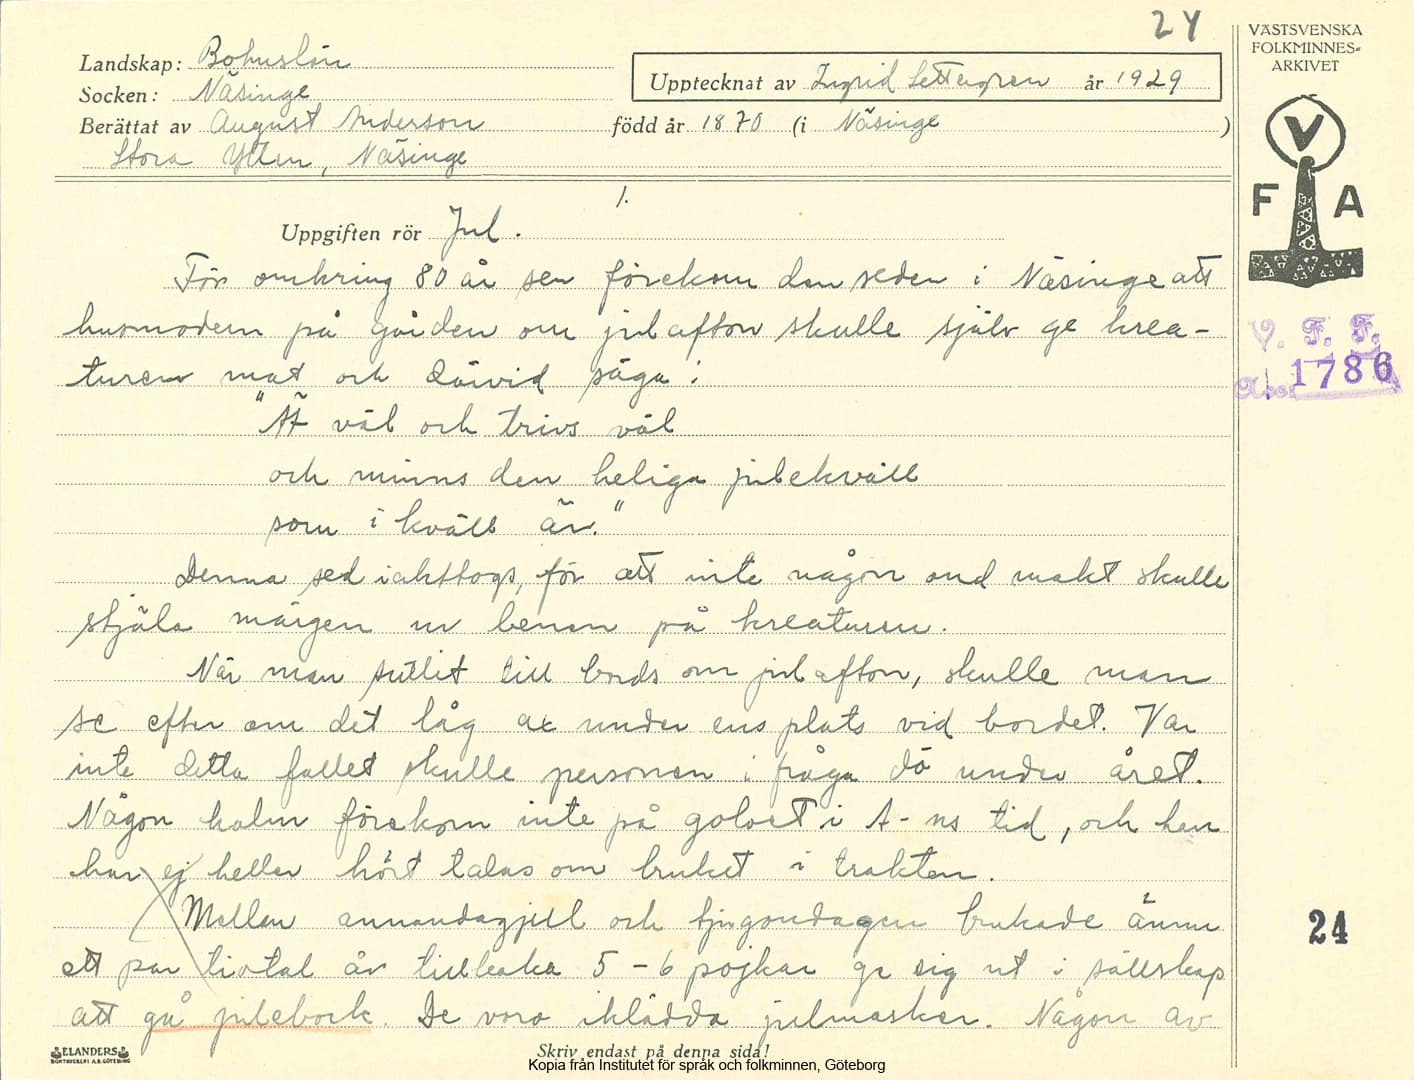 24
VÄSTSVENSKA
FOLKMINNES=
ARKIVET
Landskap: Bohuslän
Upptecknat av Ingrid Settergren år 1929
Socken: Näsinge
Berättat av August Anderson född år 1870 (i Näsinge)
Stora Ytten, Näsinge
V
F A
1.
Uppgiften rör Jul.
För omkring 80 år sen förekom den seden i Näsinge att
husmodern på gården om julafton skulle själv ge krea-
turen mat och därvid säga:
"Ät väl och trivs väl
och minns den heliga julekväll
som i kväll är."
Denna sed iakttogs, för att inte någon ond makt skulle
stjäla märgen ur benen på kreaturen.
När man suttit till bords om julafton, skulle man
se efter om det låg ax under ens plats vid bordet. Var
inte detta fallet skulle personen i fråga dö under året.
Någon halm förekom inte på golvet i A-ns tid, och han
har ej heller hört talas om bruket i trakten.
Mellan annandagjul och tjugondagen brukade ännu
ett par tiotal år tillbaka 5-6 pojkar ge sig ut i sällskap
att gå julebock. De voro iklädda julmasker. Någon av
V. F. F.
1786
24
ELANDERS
BOKTRYCKERI A.B. GÖTEBORG
Skriv endast på denna sida!
Kopia från Institutet för språk och folkminnen, Göteborg